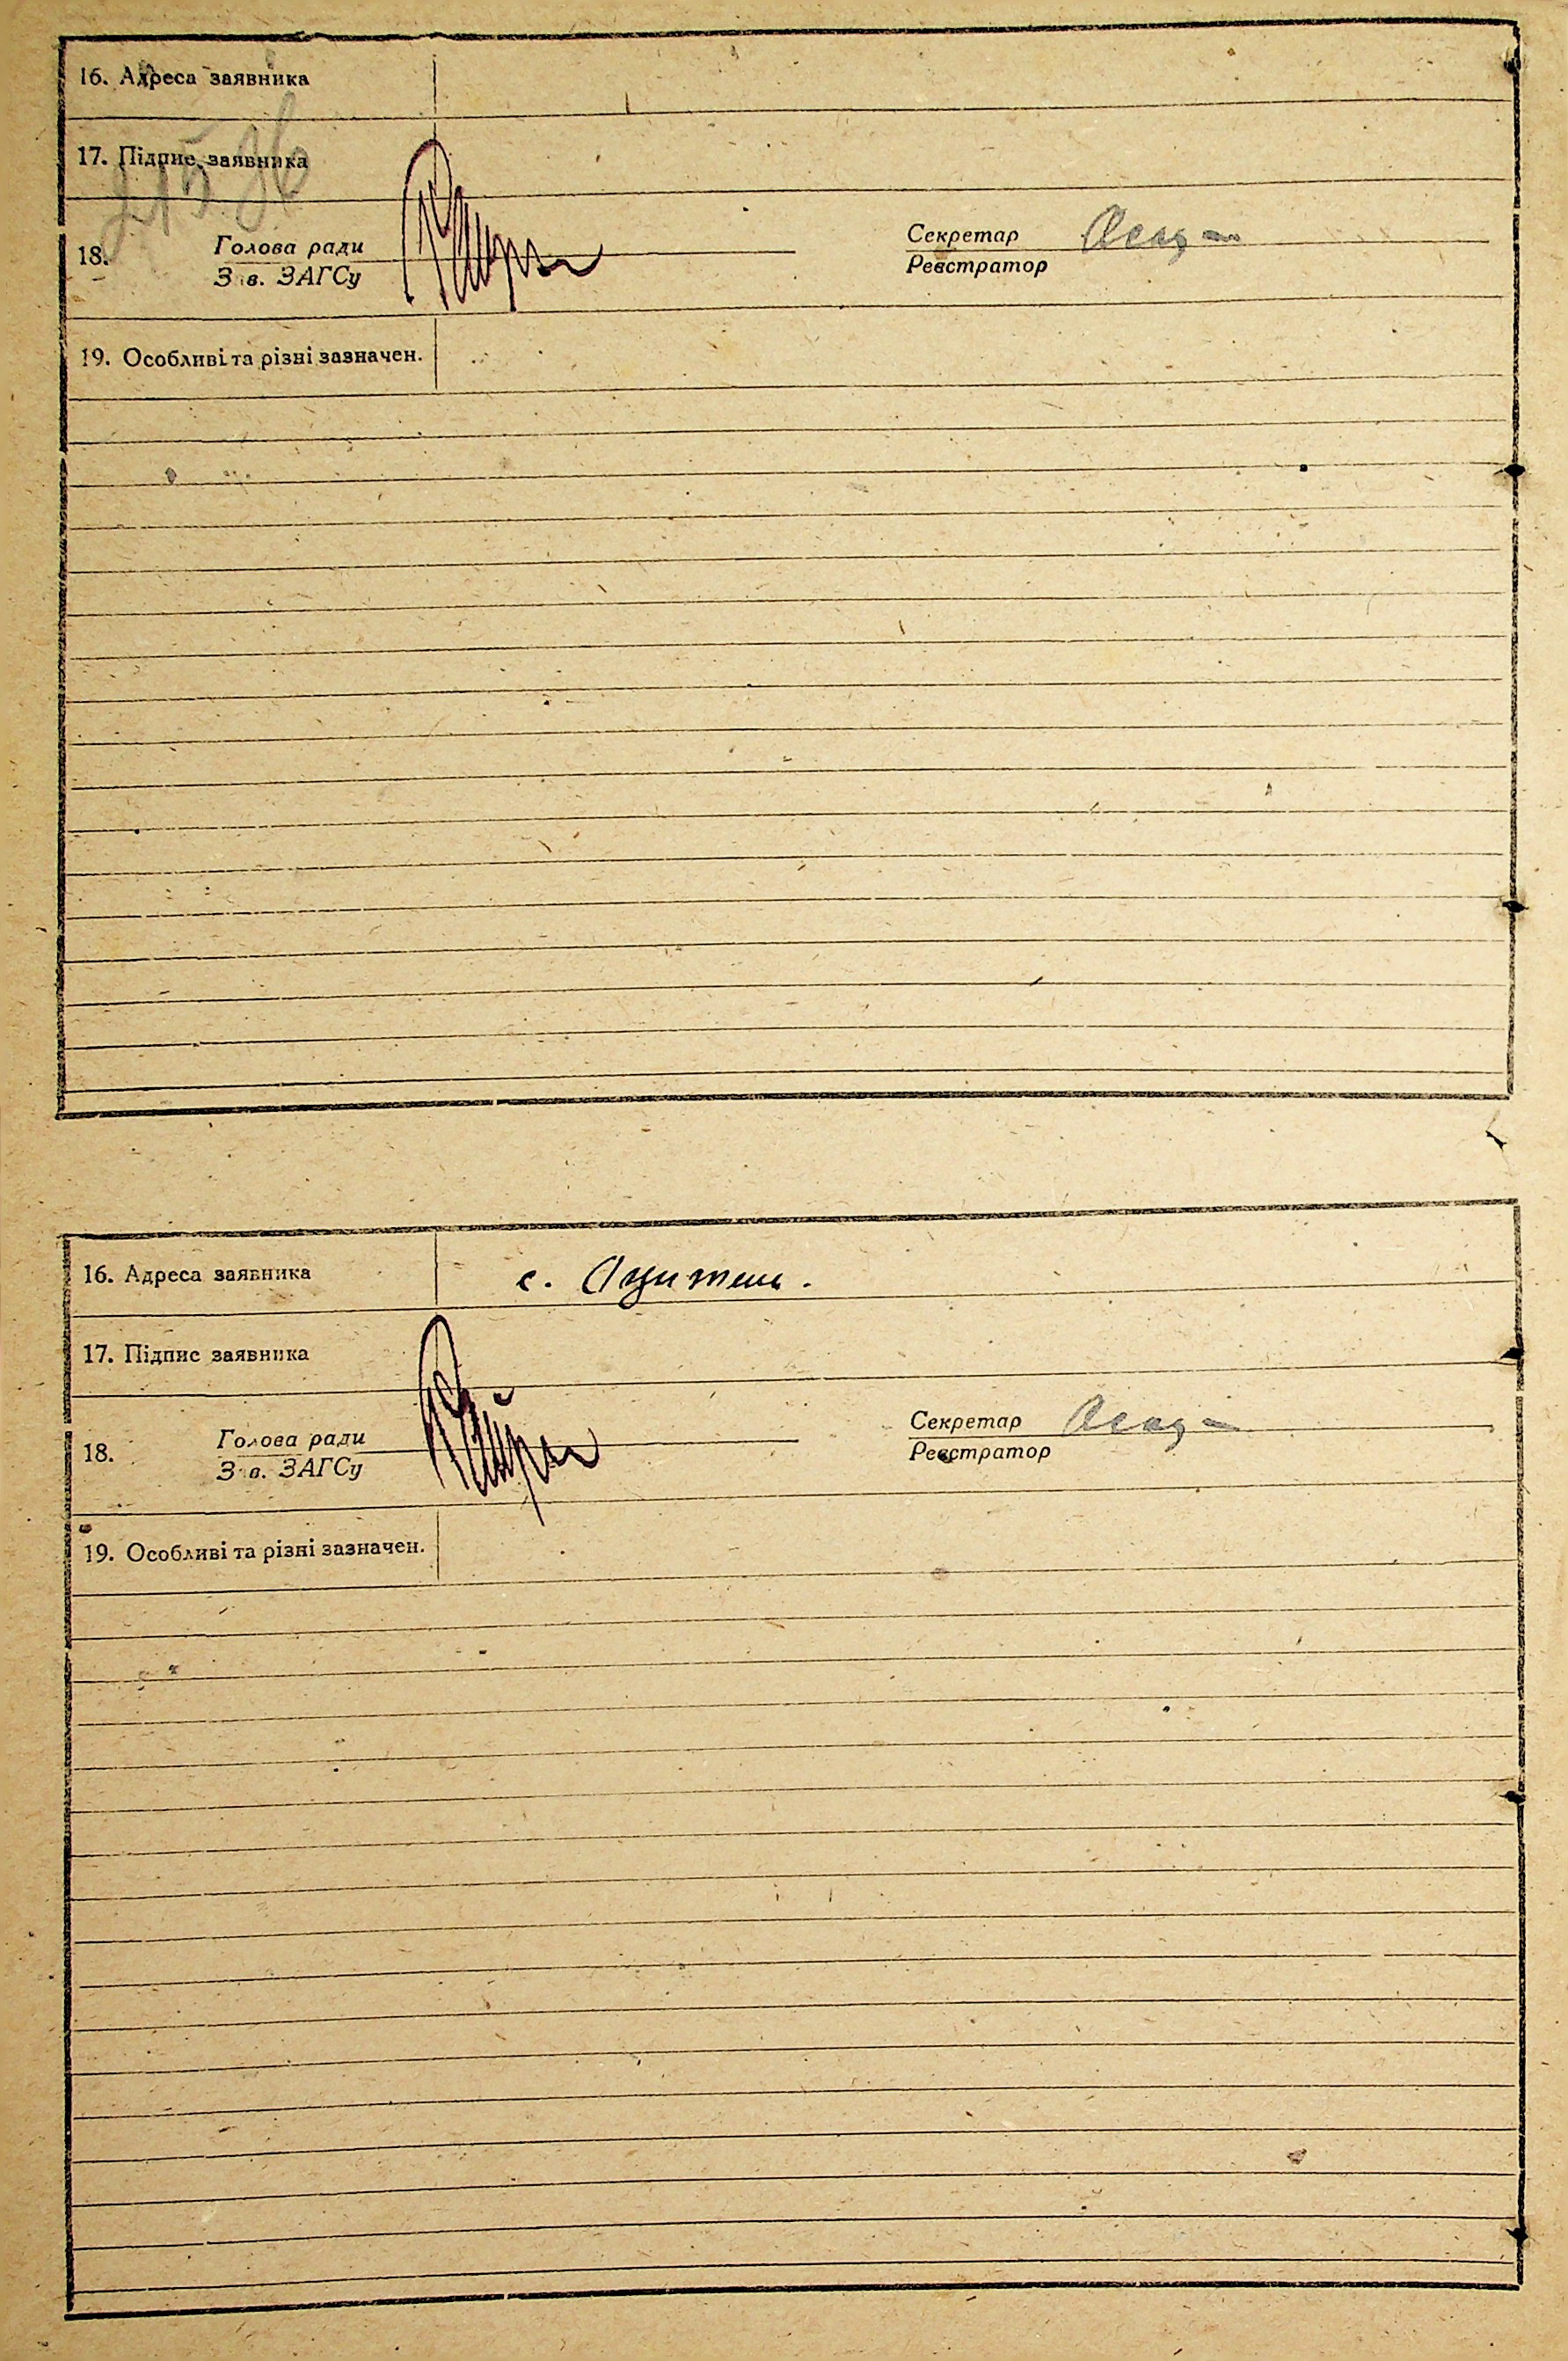 16. Адреса заявника
17. Підпис заявника
18. Голова ради
Зав. ЗАГСу
Секретар
Реєстратор
19. Особливі та різні зазначен.
16. Адреса заявника с.
17. Підпис заявника
18. Голова ради
Зав. ЗАГСу
Секретар
Реєстратор
19. Особливі та різні зазначен.